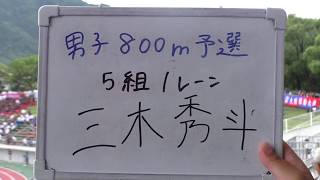 男子800m予選
5組1レーン
三木秀斗